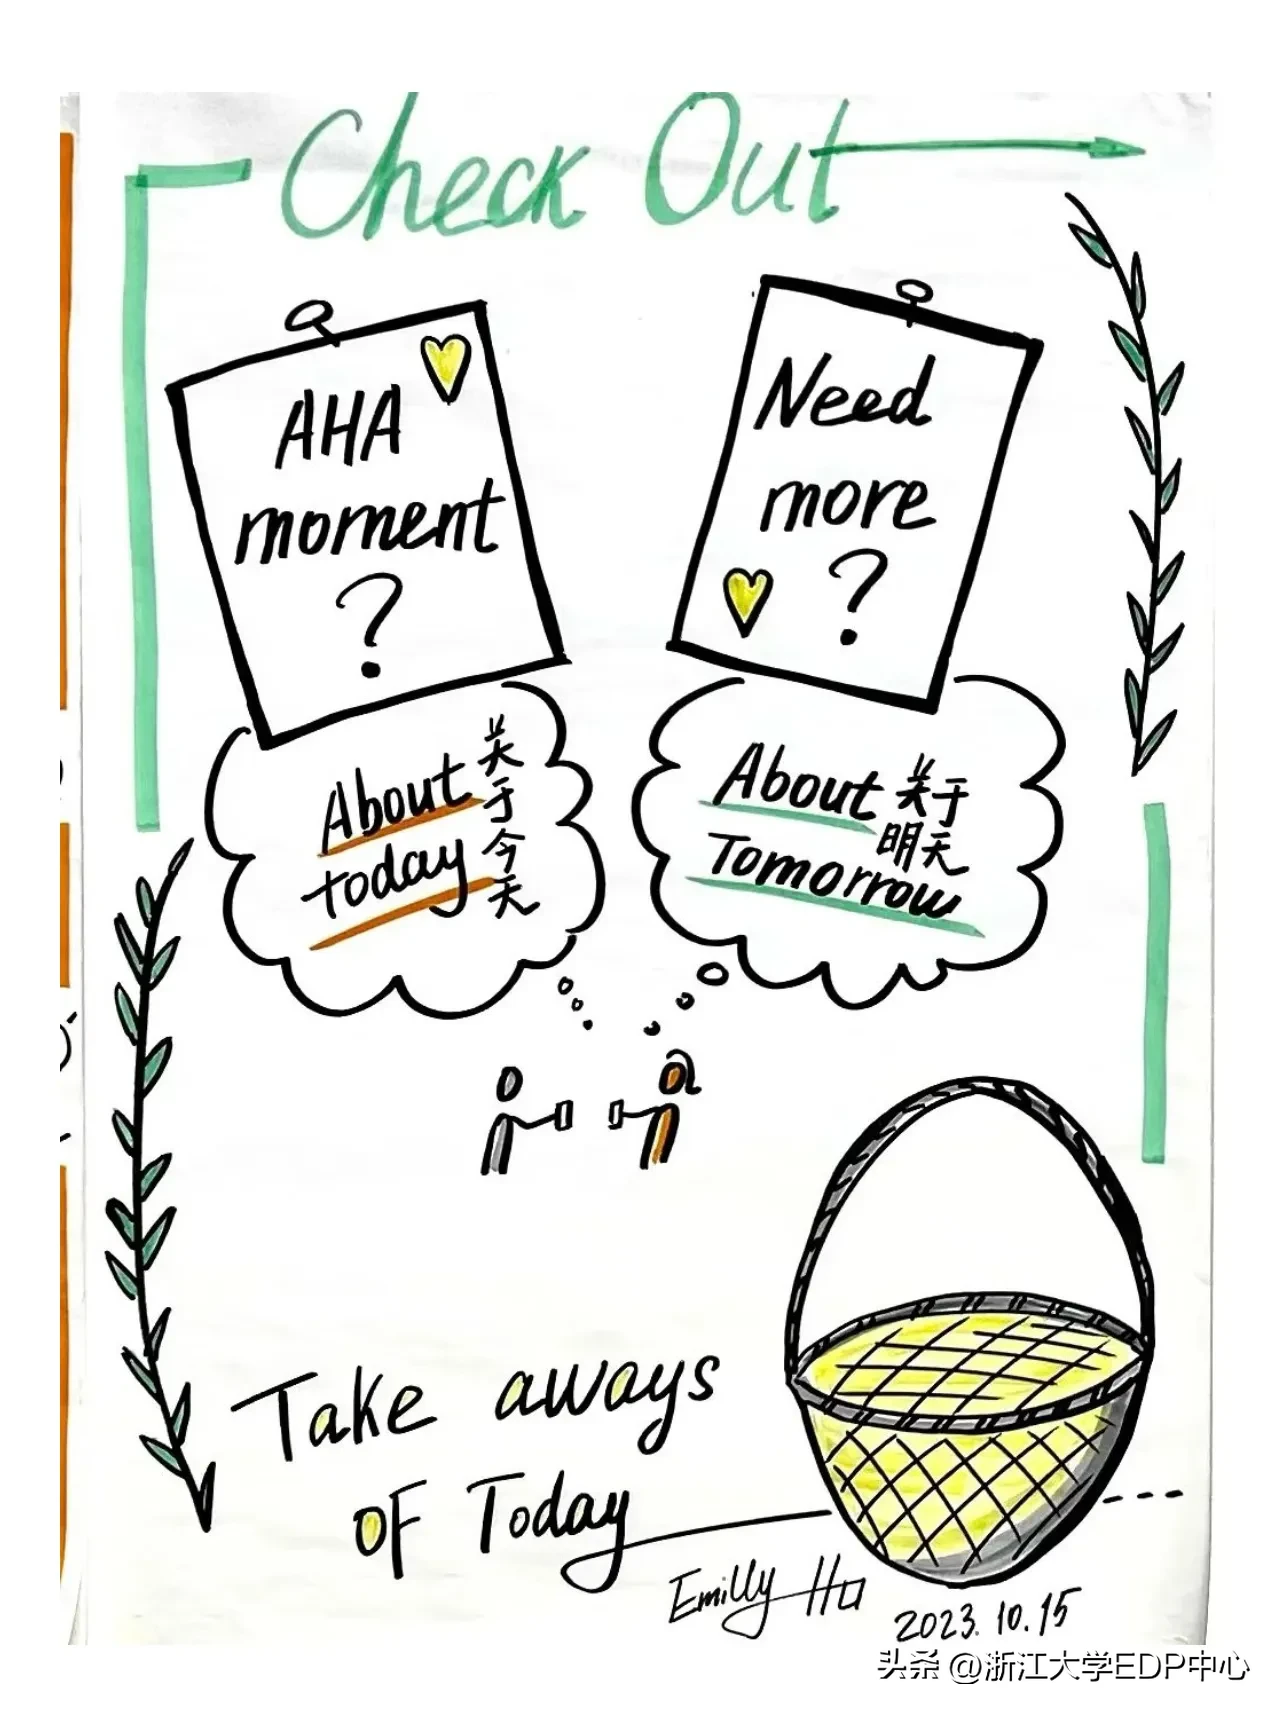 Check Out
AHA
moment
?
Need
more
?
About
today
关于今天
About
Tomorrow
关于
明天
Take aways
of Today
Emilly Hu
2023.10.15
头条 @浙江大学EDP中心